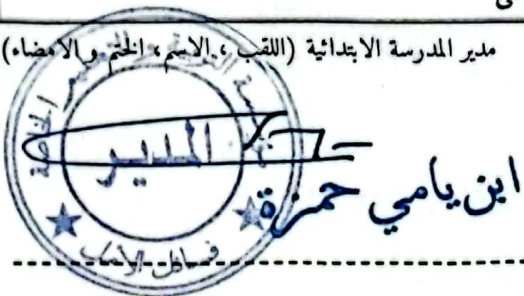 مدير المدرسة الابتدائية (اللقب، الاسم، الختم والامضاء)
المدير
ابن يامي حمزة